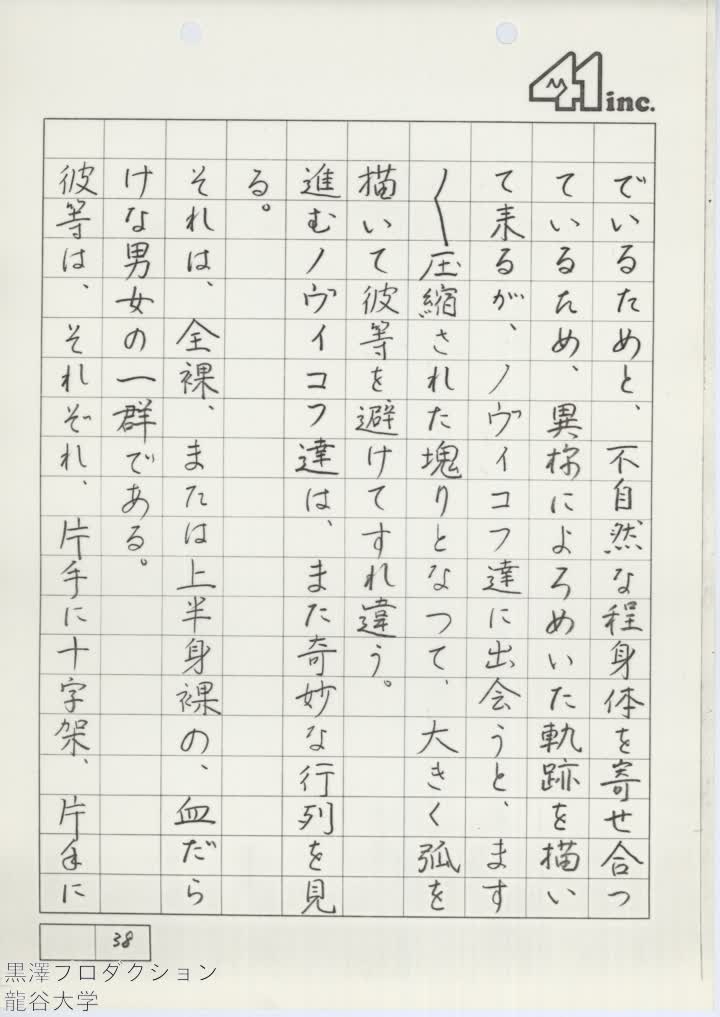 41 inc.
でいるためと、不自然な程身体を寄せ合つ
ているため、異様によろめいた軌跡を描い
て来るが、ノヴィコフ達に出会うと、ます
〳〵圧縮された塊りとなつて、大きく弧を
描いて彼等を避けてすれ違う。
進むノヴィコフ達は、また奇妙な行列を見
る。
それは、全裸、または上半身裸の、血だら
けな男女の一群である。
彼等は、それぞれ、片手に十字架、片手に
38
黒澤プロダクション
龍谷大学